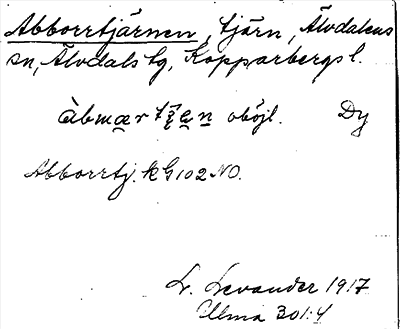 Abborrtjärnen, tjärn, Älvdalens
sn, Älvdals tg, Kopparbergs l.
oböjl. Dy
Abborrtj. kG 102 NO.
L. Levander 1917
Ulma 301:4